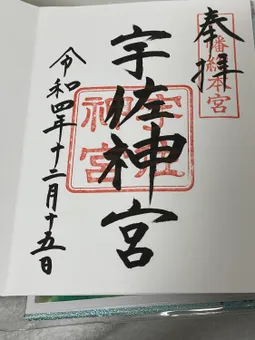 奉拝
八幡総本宮
宇佐神宮
宇佐神宮
令和四年十二月十五日